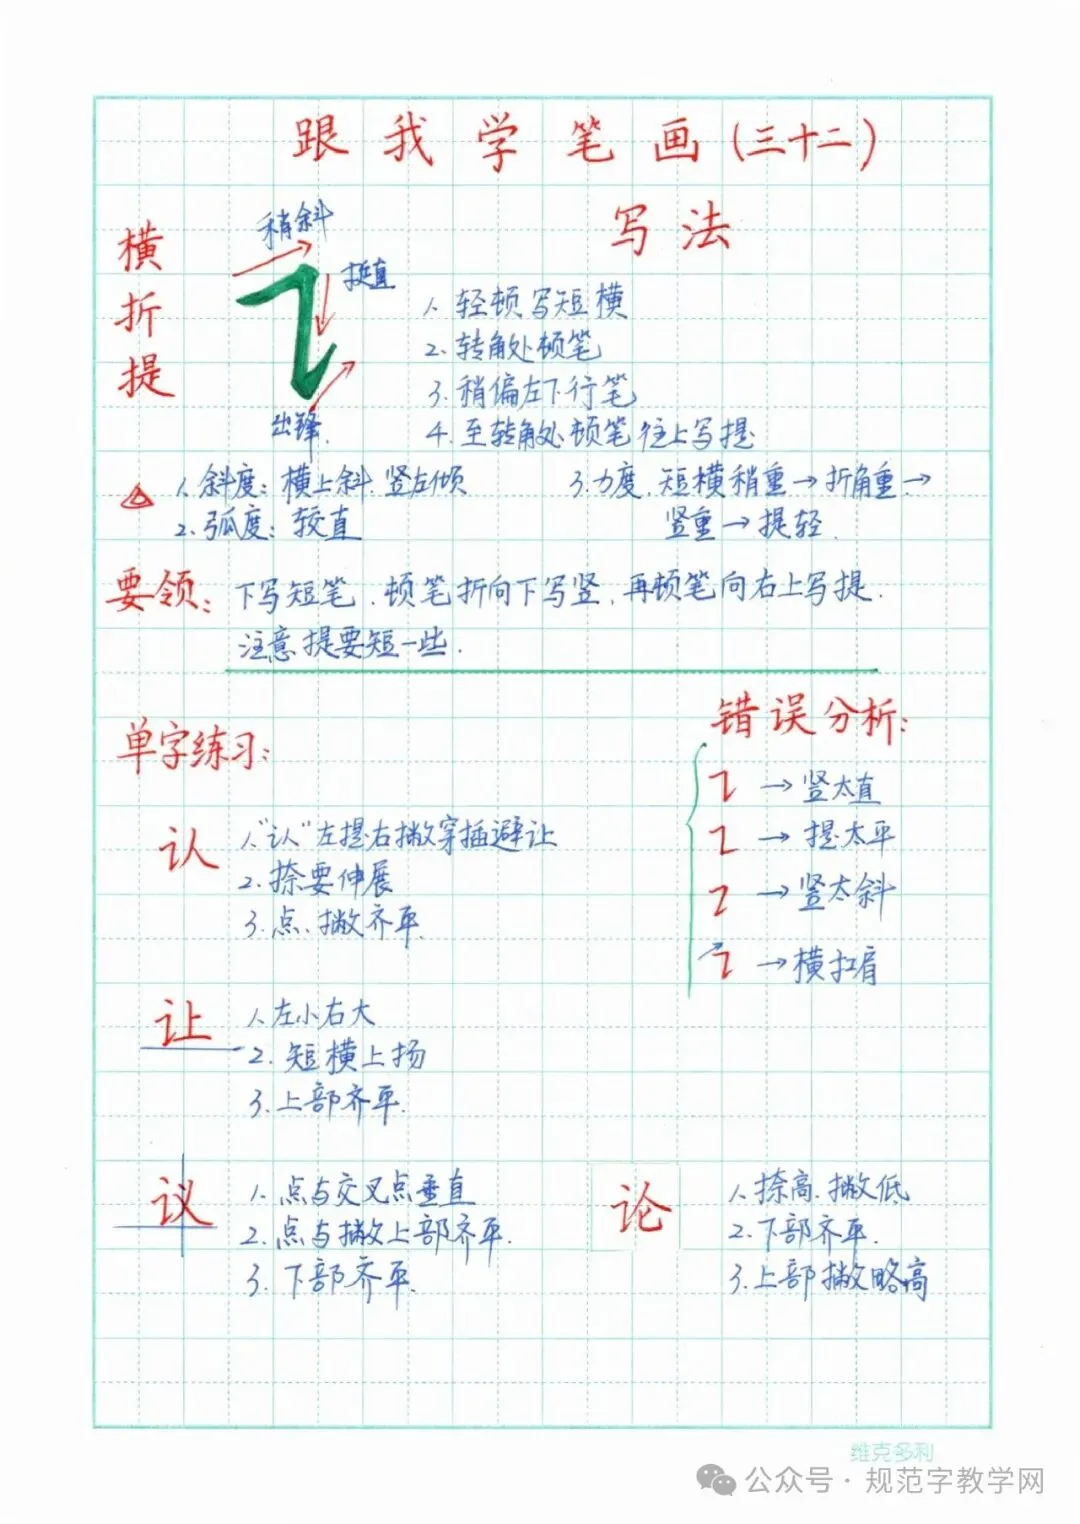 跟我学笔画(三十二)
横折提
稍斜
挺直
出锋.
写法
1. 轻顿写短横
2. 转角处顿笔
3. 稍偏左下行笔
4. 至转角处顿笔往上写提
1. 斜度: 横上斜. 竖左倾
2. 弧度: 较直
3. 力度. 短横稍重→折角重→
竖重→提轻.
要领: 下写短笔. 顿笔折向下写竖, 再顿笔向右上写提.
注意提要短一些.
单字练习:
认
1. "认"左提右撇穿插避让
2. 捺要伸展
3. 点、撇齐平.
让
1. 左小右大
2. 短横上扬
3. 上部齐平.
议
1. 点与交叉点垂直
2. 点与撇上部齐平.
3. 下部齐平.
错误分析:
→竖太直
→提太平
→竖太斜
→横扛肩
论
1. 捺高. 撇低
2. 下部齐平.
3. 上部撇略高
维克多利
公众号·规范字教学网